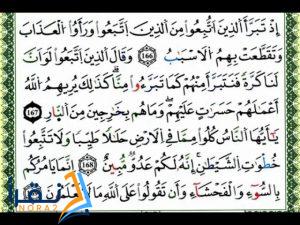 إِذْ تَبَرَّأَ ٱلَّذِينَ ٱتُّبِعُوا۟ مِنَ ٱلَّذِينَ ٱتَّبَعُوا۟ وَرَأَوُا۟ ٱلْعَذَابَ
وَتَقَطَّعَتْ بِهِمُ ٱلْأَسْبَابُ 166 وَقَالَ ٱلَّذِينَ ٱتَّبَعُوا۟ لَوْ أَنَّ
لَنَا كَرَّةً فَنَتَبَرَّأَ مِنْهُمْ كَمَا تَبَرَّءُوا۟ مِنَّا كَذَٰلِكَ يُرِيهِمُ ٱللَّهُ
أَعْمَٰلَهُمْ حَسَرَٰتٍ عَلَيْهِمْ وَمَا هُم بِخَٰرِجِينَ مِنَ ٱلنَّارِ 167
يَٰٓأَيُّهَا ٱلنَّاسُ كُلُوا۟ مِمَّا فِى ٱلْأَرْضِ حَلَٰلًا طَيِّبًا وَلَا تَتَّبِعُوا۟
خُطُوَٰتِ ٱلشَّيْطَٰنِ إِنَّهُۥ لَكُمْ عَدُوٌّ مُّبِينٌ 168 إِنَّمَا يَأْمُرُكُم
بِٱلسُّوٓءِ وَٱلْفَحْشَآءِ وَأَن تَقُولُوا۟ عَلَى ٱللَّهِ مَا لَا تَعْلَمُونَ
NORAZ